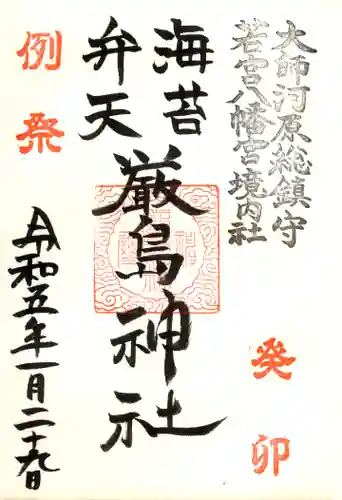 大師河原総鎮守
若宮八幡宮境内社
海苔
弁天
厳島神社
例祭
令和五年一月二十九日
癸卯